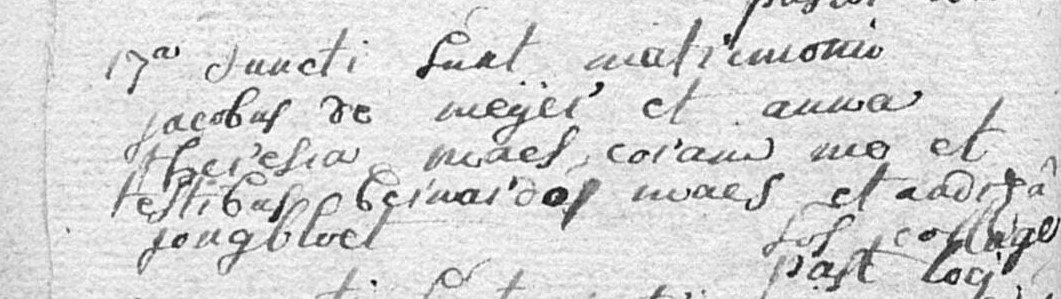 17a Juncti sunt matrimonio
jacobus de meijer et anna
theresia maes coram me et
testibus bernardo maes et andrea
jongbloet jos
past loci